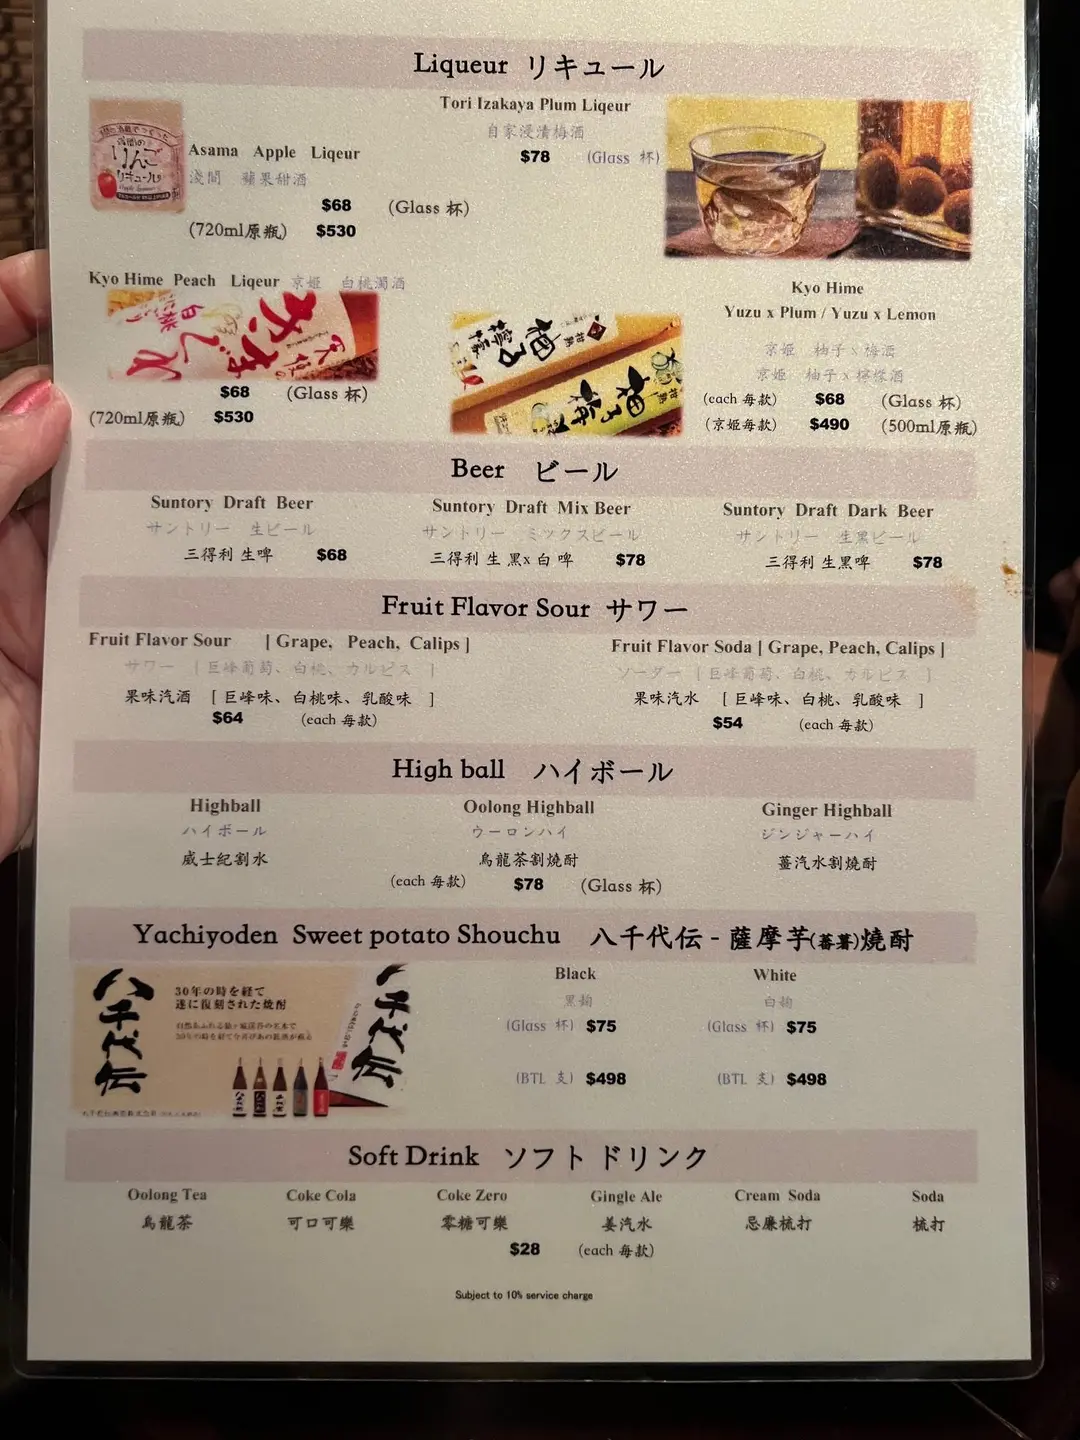 Liqueur リキュール
Tori Izakaya Plum Liqeur
自家浸漬梅酒
$78 (Glass 杯)
りんご
リキュール
Asama Apple Liqeur
淺間 蘋果甜酒
$68 (Glass 杯)
(720ml原瓶) $530
Kyo Hime Peach Liqeur 京姫 白桃濁酒
白桃
$68 (Glass 杯)
(720ml原瓶) $530
Kyo Hime
Yuzu x Plum / Yuzu x Lemon
京姫 柚子 x 梅酒
京姫 柚子 x 檸檬酒
(each 每款) $68 (Glass 杯)
(京姫每款) $490 (500ml原瓶)
Beer ビール
Suntory Draft Beer
サントリー 生ビール
三得利 生啤 $68
Suntory Draft Mix Beer
サントリー ミックスビール
三得利 生 黑x 白 啤 $78
Suntory Draft Dark Beer
サントリー 生黒ビール
三得利 生黑啤 $78
Fruit Flavor Sour サワー
Fruit Flavor Sour [ Grape, Peach, Calips ]
サワー [ 巨峰葡萄、白桃、カルピス ]
果味汽酒 [ 巨峰味、白桃味、乳酸味 ]
$64 (each 每款)
Fruit Flavor Soda [ Grape, Peach, Calips ]
ソーダー [ 巨峰葡萄、白桃、カルピス ]
果味汽水 [ 巨峰味、白桃、乳酸味 ]
$54 (each 每款)
High ball ハイボール
Highball
ハイボール
威士紀割水
Oolong Highball
ウーロンハイ
烏龍茶割燒酎
Ginger Highball
ジンジャーハイ
薑汽水割燒酎
(each 每款) $78 (Glass 杯)
Yachiyoden Sweet potato Shouchu 八千代伝 - 薩摩芋(蕃薯)燒酎
八千代伝
30年の時を経て
遂に復刻された焼酎
八千代伝
Black
黒麹
(Glass 杯) $75
(BTL 支) $498
White
白麹
(Glass 杯) $75
(BTL 支) $498
Soft Drink ソフトドリンク
Oolong Tea Coke Cola Coke Zero Gingle Ale Cream Soda Soda
烏龍茶 可口可樂 零糖可樂 姜汽水 忌廉梳打 梳打
$28 (each 每款)
Subject to 10% service charge